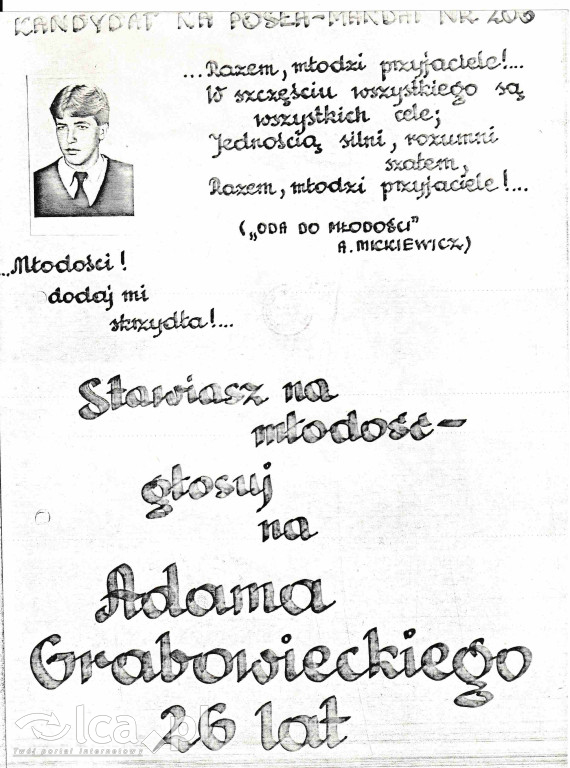 KANDYDAT NA POSŁA-MANDAT NR 206
...Razem, młodzi przyjaciele!...
W szczęściu wszystkiego są
wszystkich cele;
Jednością silni, rozumni
szałem,
Razem, młodzi przyjaciele!...
("ODA DO MŁODOŚCI"
A. MICKIEWICZ)
...Młodości!
dodaj mi
skrzydła!...
Stawiasz na
młodość-
głosuj
na
Adama
Grabowieckiego
26 lat
lca.pl
Twój portal internetowy